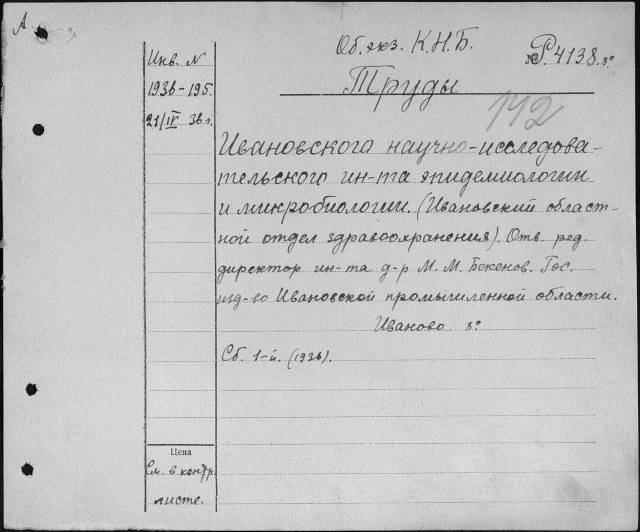 А.
Об. экз. К.Н.Б.
№ Р.4138. 8°
Инв. N
1936-195.
21/IV 36 г.
Труды
142
Ивановского научно-исследова-
тельского ин-та эпидемиологии
и микробиологии. (Ивановский област-
ной отдел здравоохранения). Отв. ред.
директор ин-та д-р М. М. Бекенов. Гос.
изд-во Ивановской промышленной области.
Иваново 8°
Сб. 1-й. (1936).
Цена
См. в контр.
листе.